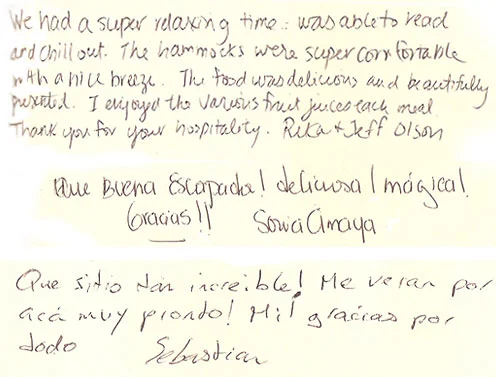 We had a super relaxing time.. was able to read
and chill out. The hammocks were super comfortable
with a nice breeze. The food was delicious and beautifully
presented. I enjoyed the various fruit juices each meal
Thank you for your hospitality. Rita + Jeff Olson
Que Buena Escapada! deliciosa! mágica!
Gracias!! Sonia Amaya
Que sitio tan increible! Me veran por
acá muy pronto! Mil gracias por
todo Sebastian